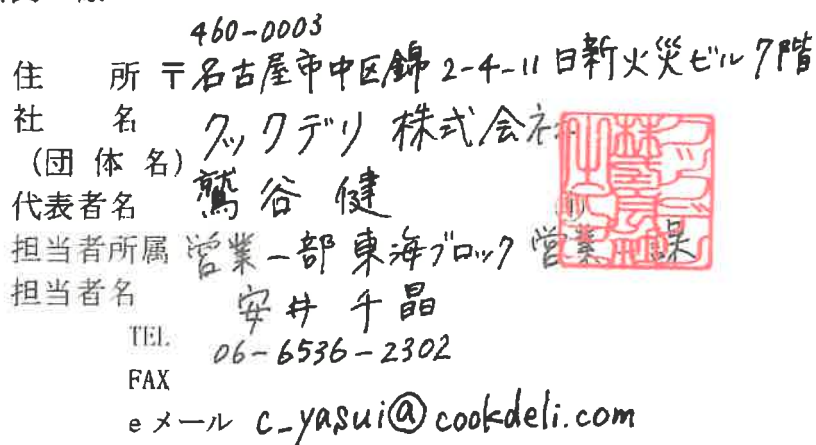 460-0003
住所 〒名古屋市中区錦 2-4-11 日新火災ビル 7階
社名 クックデリ 株式会社
(団体名)
代表者名 鷲谷 健 ㊞
担当者所属 営業一部 東海ブロック 営業 課
担当者名 安井 千晶
TEL 06-6536-2302
FAX
eメール c_yasui@cookdeli.com